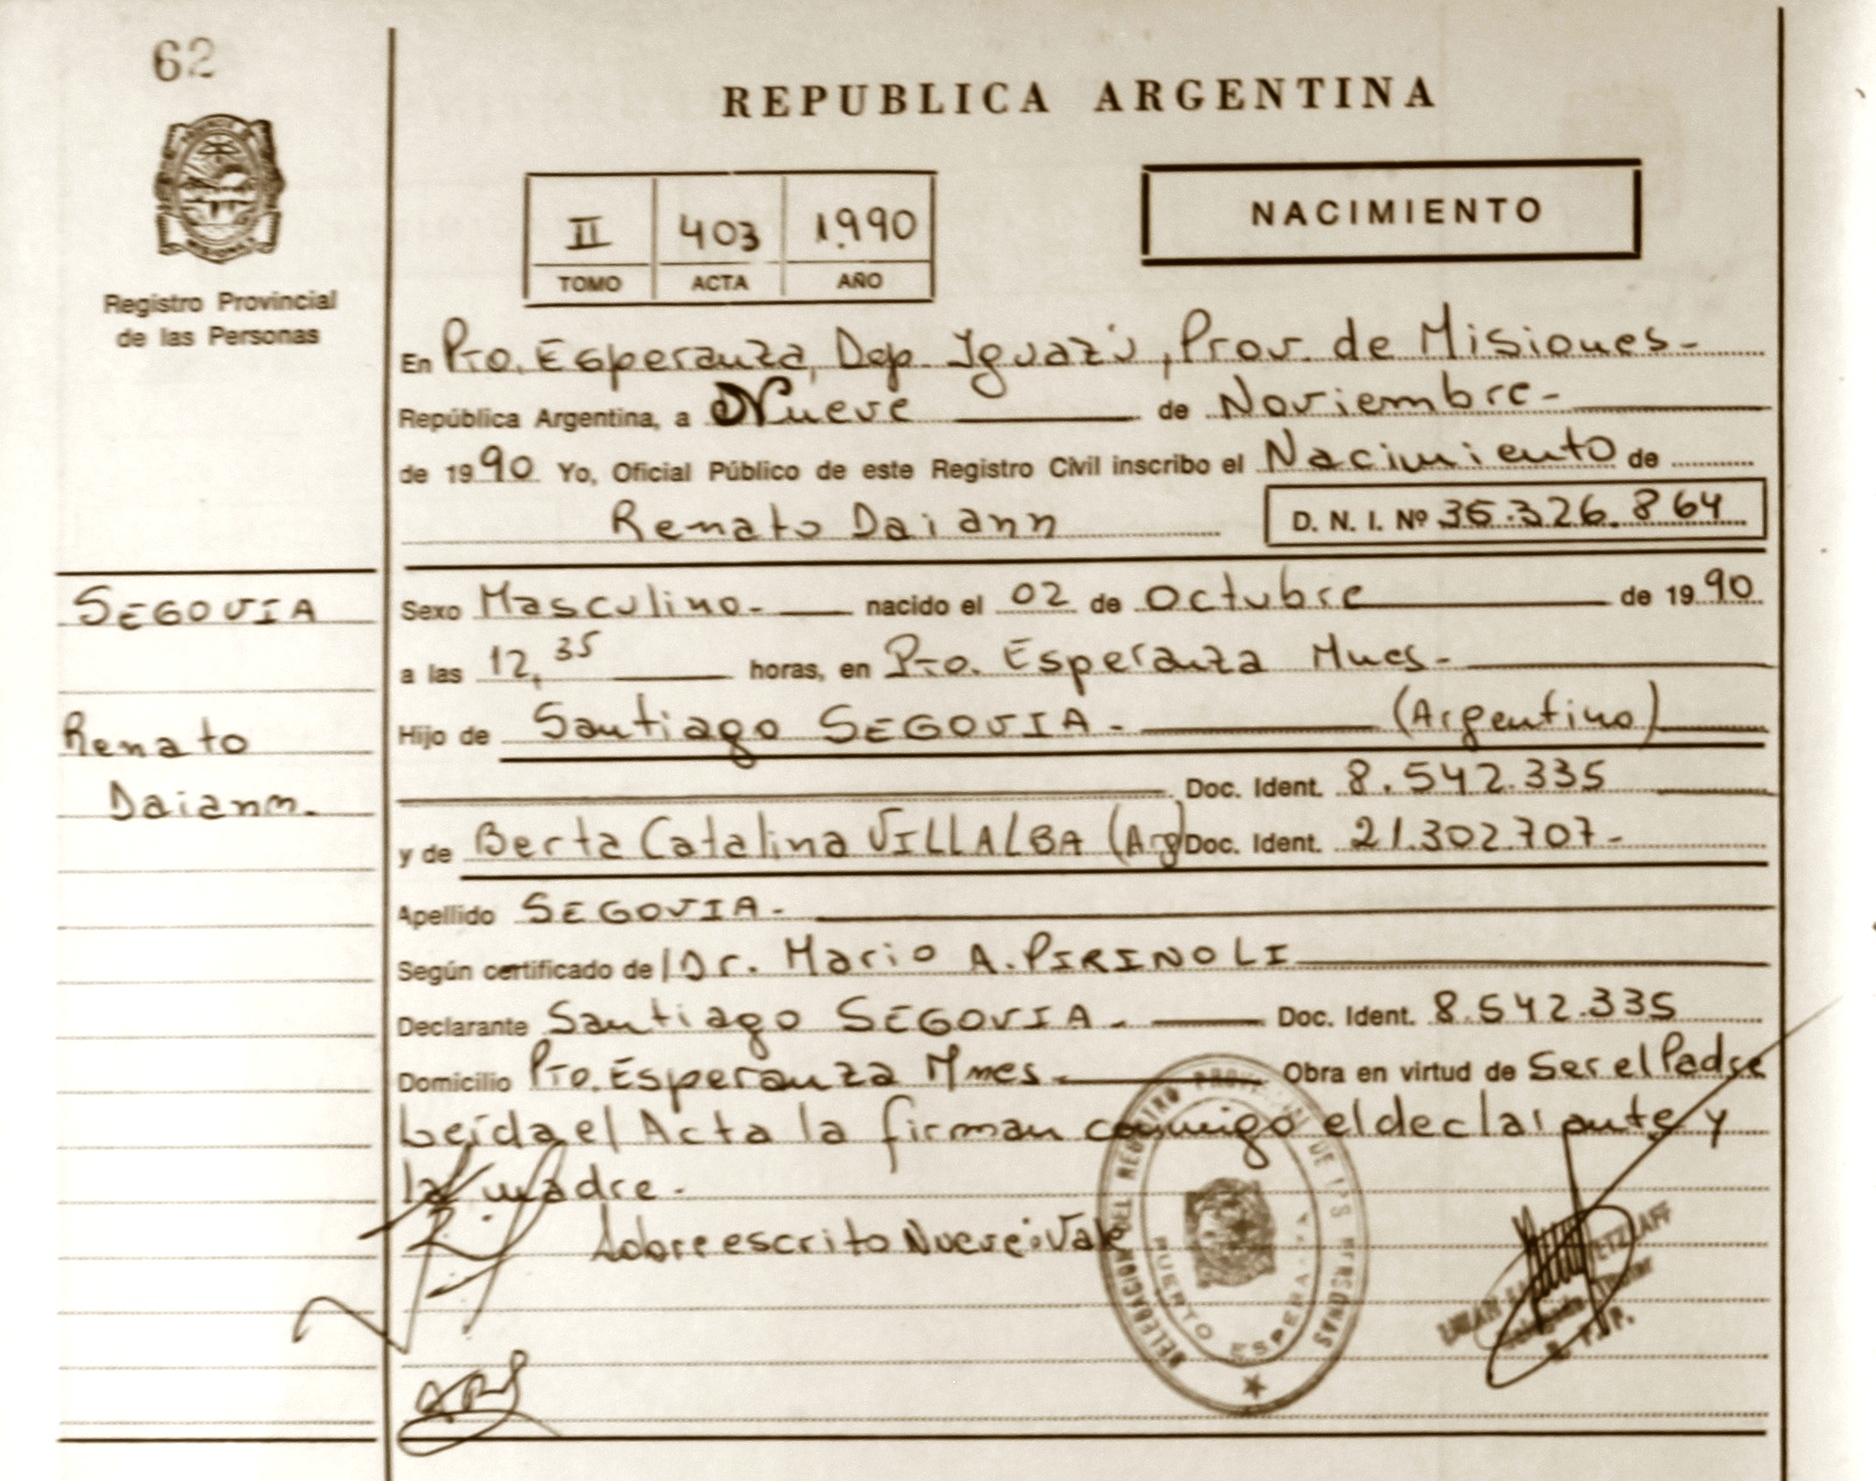 62
REPUBLICA ARGENTINA
II 403 1.990
TOMO ACTA AÑO
NACIMIENTO
Registro Provincial
de las Personas
En Pto. Esperanza, Dep. Iguazú, Prov. de Misiones-
República Argentina, a Nueve de Noviembre-
de 1990 Yo, Oficial Público de este Registro Civil inscribo el Nacimiento de
Renato Daiann D. N. I. Nº 35.326.864
SEGOVIA
Renato
Daiann.
Sexo Masculino- nacido el 02 de Octubre de 1990
a las 12,35 horas, en Pto. Esperanza Mnes-
Hijo de Santiago SEGOVIA- (Argentino)
Doc. Ident. 8.542.335
y de Berta Catalina VILLALBA (Arg) Doc. Ident. 21.302.707-
Apellido SEGOVIA-
Según certificado de Dr. Mario A. PIRINOLI
Declarante Santiago SEGOVIA- Doc. Ident. 8.542.335
Domicilio Pto. Esperanza Mnes- Obra en virtud de Ser el Padre
Leída el Acta la firman conmigo el declarante y
la madre-
Sobre escrito Nueve: Vale
DELEGACION DEL REGISTRO PROVINCIAL DE LAS PERSONAS
PUERTO ESPERANZA